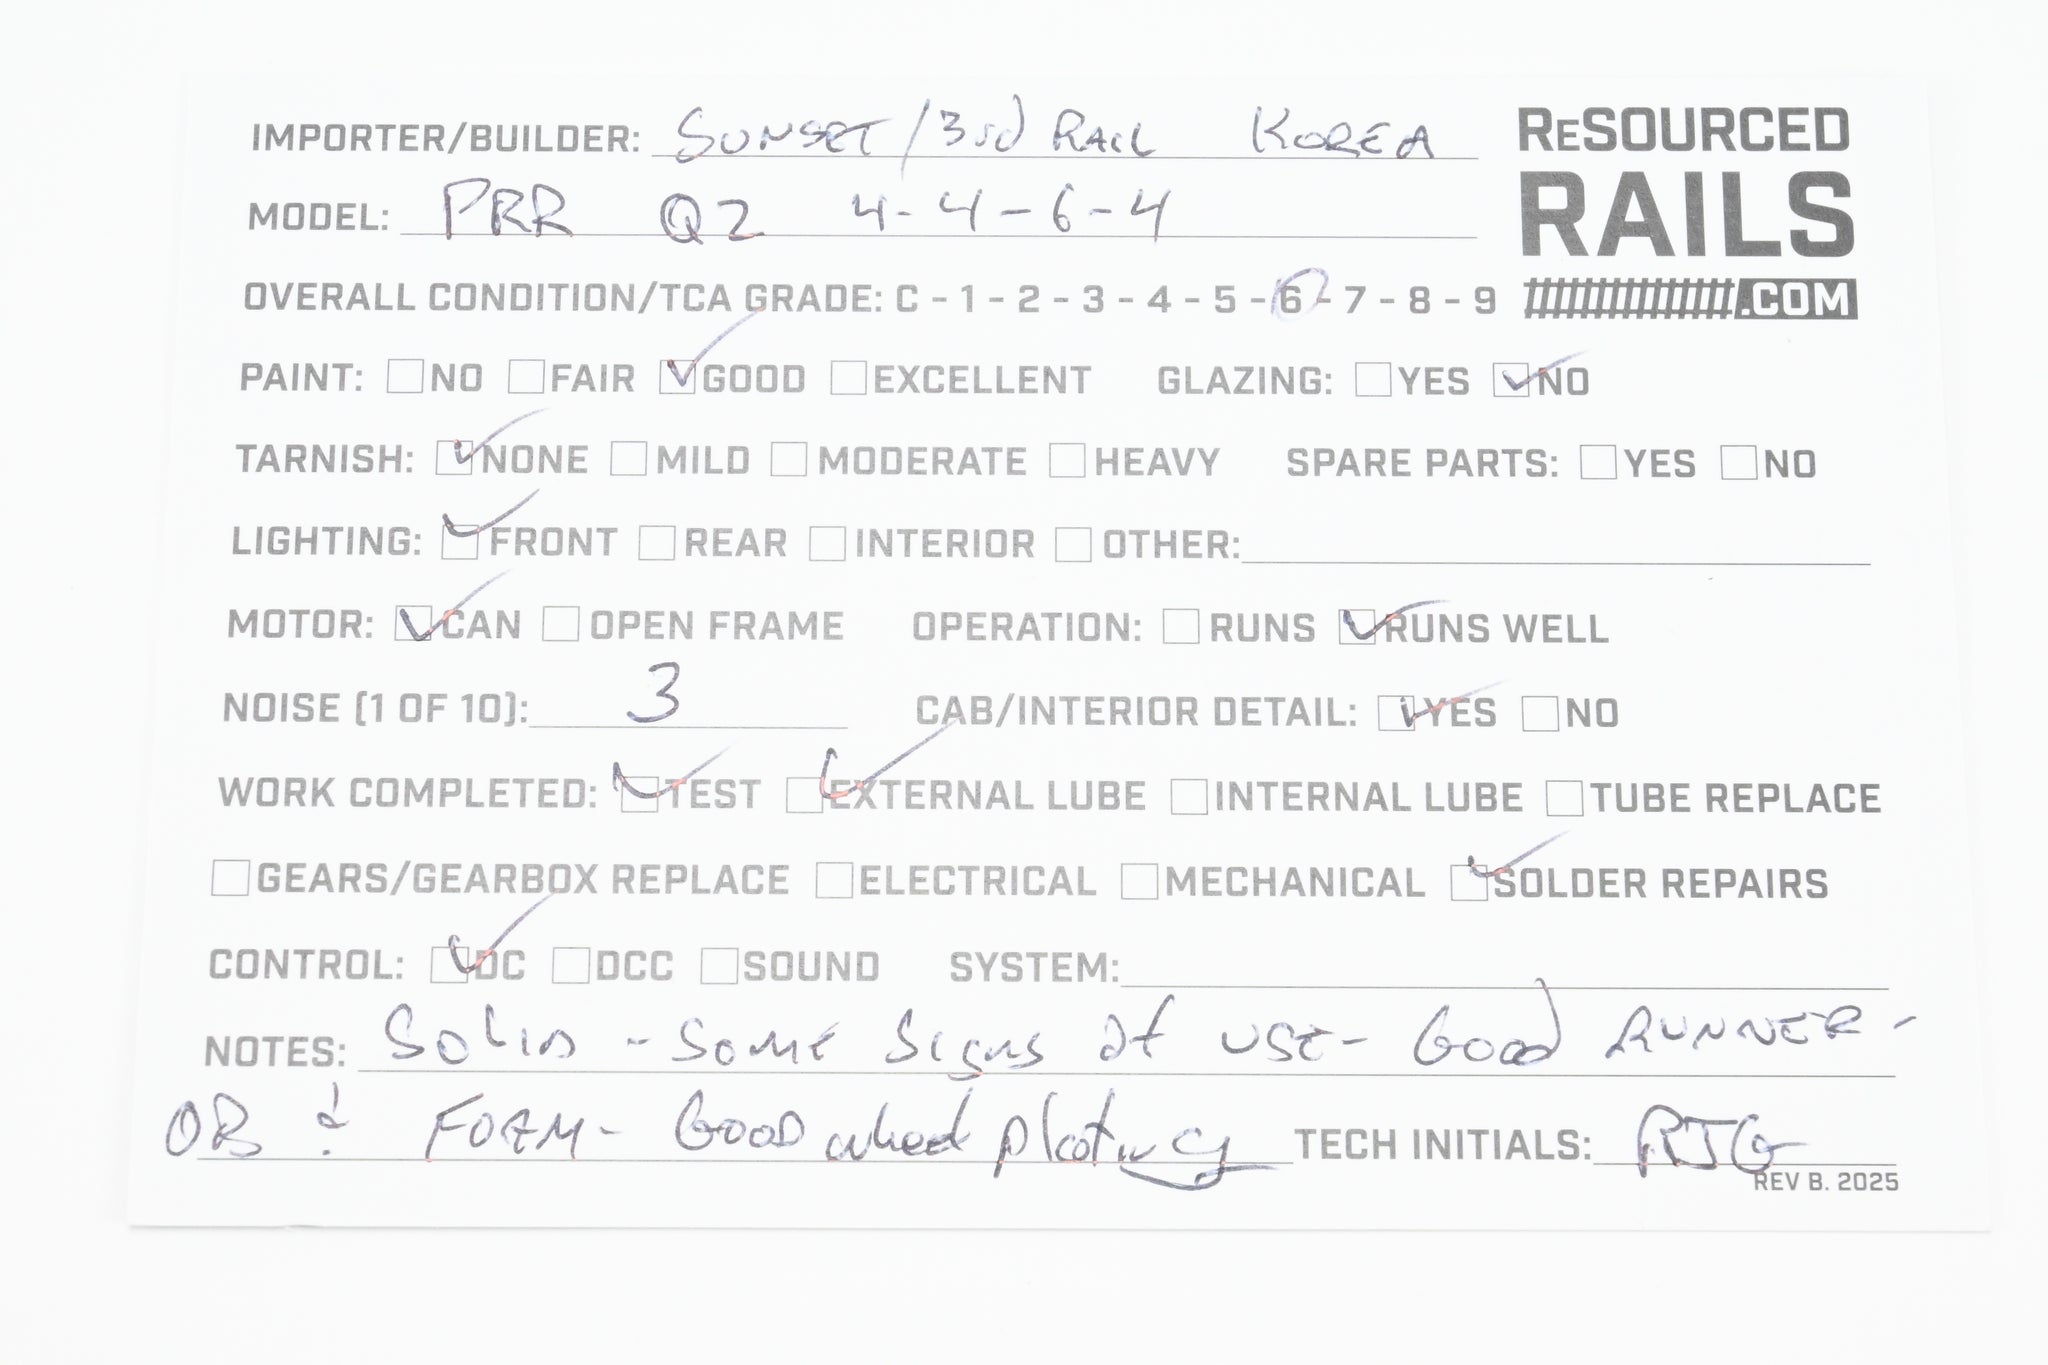 IMPORTER/BUILDER: SUNSET/3rd RAIL KOREA
ReSOURCED
RAILS
.COM
MODEL: PRR Q2 4-4-6-4
OVERALL CONDITION/TCA GRADE: C - 1 - 2 - 3 - 4 - 5 - 6 - 7 - 8 - 9
PAINT: NO FAIR GOOD EXCELLENT GLAZING: YES NO
TARNISH: NONE MILD MODERATE HEAVY SPARE PARTS: YES NO
LIGHTING: FRONT REAR INTERIOR OTHER:
MOTOR: CAN OPEN FRAME OPERATION: RUNS RUNS WELL
NOISE (1 OF 10): 3 CAB/INTERIOR DETAIL: YES NO
WORK COMPLETED: TEST EXTERNAL LUBE INTERNAL LUBE TUBE REPLACE
GEARS/GEARBOX REPLACE ELECTRICAL MECHANICAL SOLDER REPAIRS
CONTROL: DC DCC SOUND SYSTEM:
NOTES: SOLID - SOME Signs of USE - Good RUNNER -
OB & FOAM - GOOD wheel plating TECH INITIALS: RJG
REV B. 2025